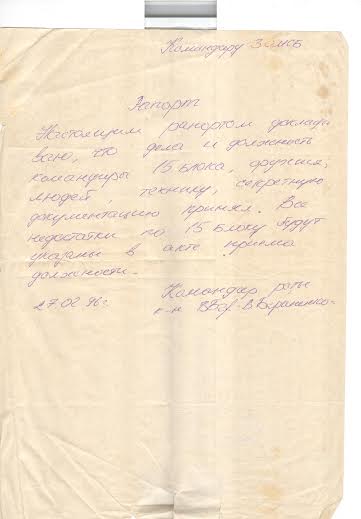 Командару 3 мсб
Рапорт
Настоящим рапортом доклады
ваю, что дела и должность
командиры 15 блока, оружия,
людей, технику, секретную
документацию принял. Все
недостатки по 15 блоку будут
указаны в акте приема
должности.
Командар роты
27.02 96г. к-н